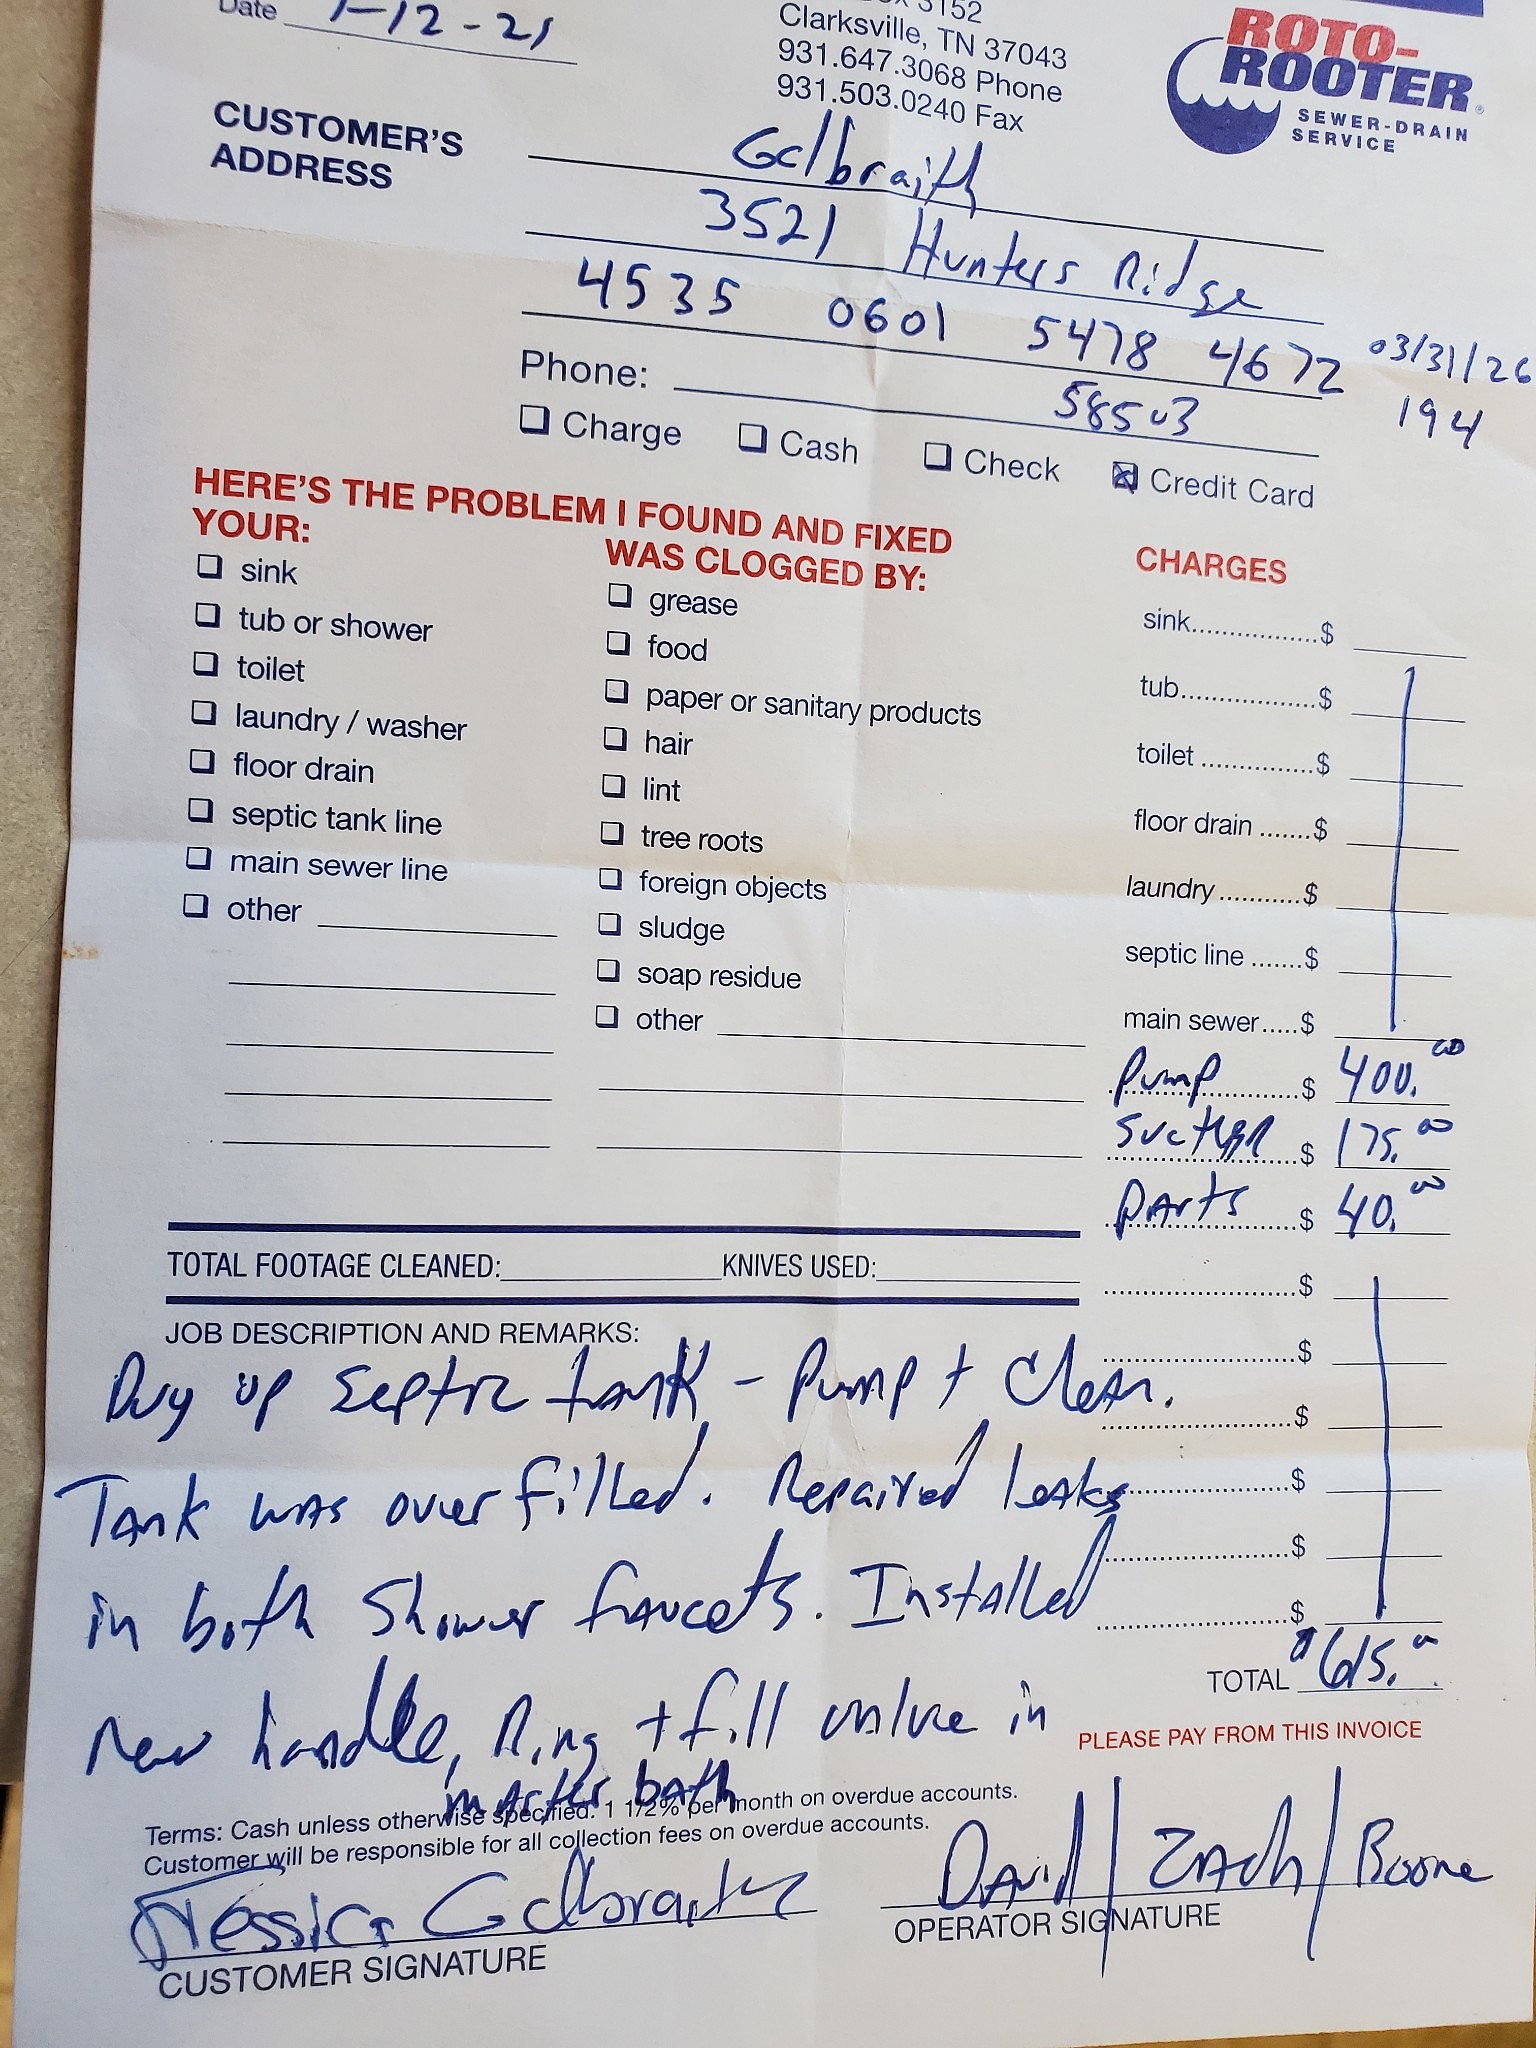 Date 1-12-21
3152
Clarksville, TN 37043
931.647.3068 Phone
931.503.0240 Fax
ROTO-
ROOTER®
SEWER-DRAIN
SERVICE
CUSTOMER'S
ADDRESS
Galbraith
3521 Hunters Ridge
[payment card number, expiration date and security code redacted]
Phone: 58503
Charge Cash Check Credit Card
HERE'S THE PROBLEM I FOUND AND FIXED
YOUR:
sink
tub or shower
toilet
laundry / washer
floor drain
septic tank line
main sewer line
other
WAS CLOGGED BY:
grease
food
paper or sanitary products
hair
lint
tree roots
foreign objects
sludge
soap residue
other
CHARGES
sink..................$
tub...................$
toilet ...............$
floor drain .......$
laundry ...........$
septic line .......$
main sewer.....$
Pump $ 400.00
Suction $ 175.00
Parts $ 40.00
$
$
$
$
$
$
TOTAL $615.00
PLEASE PAY FROM THIS INVOICE
TOTAL FOOTAGE CLEANED: KNIVES USED:
JOB DESCRIPTION AND REMARKS:
Dug up septic tank - Pump + Clean.
Tank was over filled. Repaired leaks
in both shower faucets. Installed
new handle, Ring + fill valve in
master bath
Terms: Cash unless otherwise specified. 1 1/2% per month on overdue accounts.
Customer will be responsible for all collection fees on overdue accounts.
Jessica Galbraith
CUSTOMER SIGNATURE
David / Zach / Boone
OPERATOR SIGNATURE